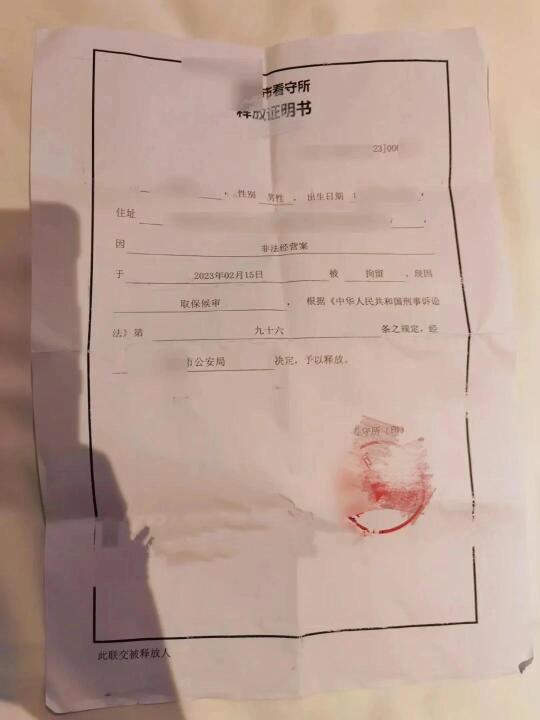 市看守所
释放证明书
23]000
性别 男性 , 出生日期
住址
因 非法经营案
于 2023年02月15日 被 拘留 , 现因
取保候审 , 根据《中华人民共和国刑事诉讼
法》第 九十六 条之规定, 经
市公安局 决定, 予以释放。
守所（印）
此联交被释放人